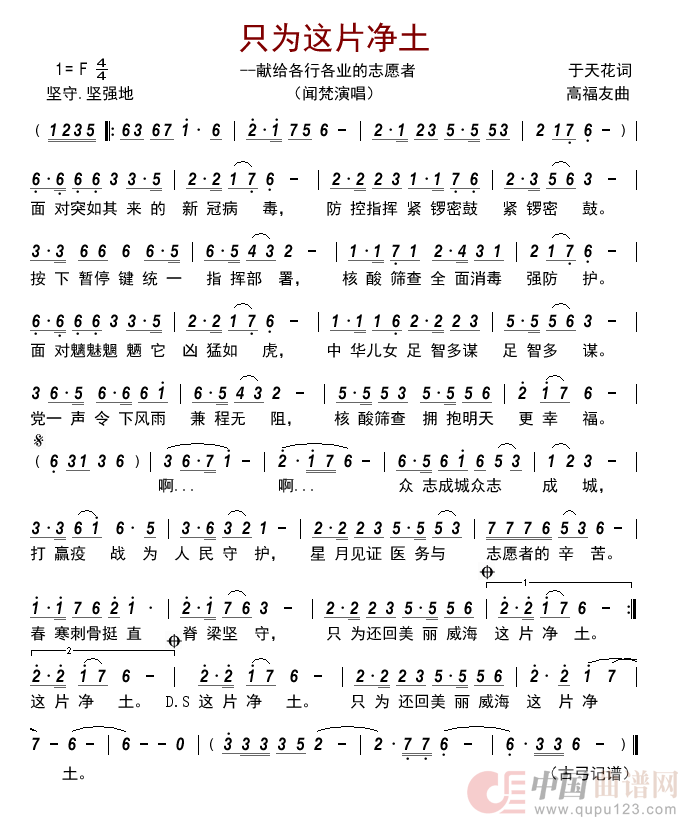 只为这片净土
1= F 4/4
--献给各行各业的志愿者
于天花词
坚守.坚强地
（闻梵演唱）
高福友曲
( 1235 ‖: 63 67 1· 6 | 2·1 75 6 - | 2·1 23 5·5 53 | 2 217 6 - ) |
6·6 6 6 3 3·5 | 2·2 217 6 - | 2·2 2123 1·1 76 | 2·3 56 3 - |
面 对突如其 来 的 新 冠病 毒， 防 控指挥 紧 锣密鼓 紧 锣密 鼓。
3·3 66 6 6·5 | 6·5 43 2 - | 1·1 71 2·4 31 | 2 217 6 - |
按 下 暂停 键 统 一 指 挥部 署， 核 酸 筛查 全 面消毒 强防 护。
6·6 6666 3 3·5 | 2·2 217 6 - | 2·2 2126 2·2 23 | 5·5 56 3 - |
面 对魑魅魍 魉 它 凶 猛如 虎， 中 华儿女 足 智多谋 足 智多 谋。
3 6·5 6·6 61 | 6·5 43 2 - | 5·5 53 5·5 56 | 2 217 6 - |
党一 声 令 下风雨 兼 程无 阻， 核 酸筛查 拥 抱明天 更 幸 福。
( 6 31 3 6 ) | 3 6·7 1 - | 2·17 6 - | 6·5 61 6 53 | 1 23 - |
啊... 啊... 众 志成城众志 成 城，
3·3 61 6·5 5 | 3·6 32 1 - | 3·3 23 5·5 3 | 7776 53 6 - |
打 赢疫 战 为 人 民 守 护， 星 月见证 医 务与 志愿者的 辛 苦。
1
1·1 76 2 1 | 2·1 76 3 - | 2·2 23 5·5 56 | 2·2 217 6 - :‖
春 寒刺骨挺 直 脊 梁坚 守， 只 为还回美 丽 威海 这 片 净 土。
2
2·2 217 6 - | 2·2 217 6 - | 2·2 23 5·5 56 | 2·2 1 7 |
这 片 净 土。 D.S 这 片 净 土。 只 为 还回美 丽 威海 这 片 净
7 - 6 - | 6 - - 0 ( | 3 333 5 3 | 2·7 7 6 - | 6· 3 3 - ) ‖
土。
（古弓记谱）
中国曲谱网
www.qupu123.com